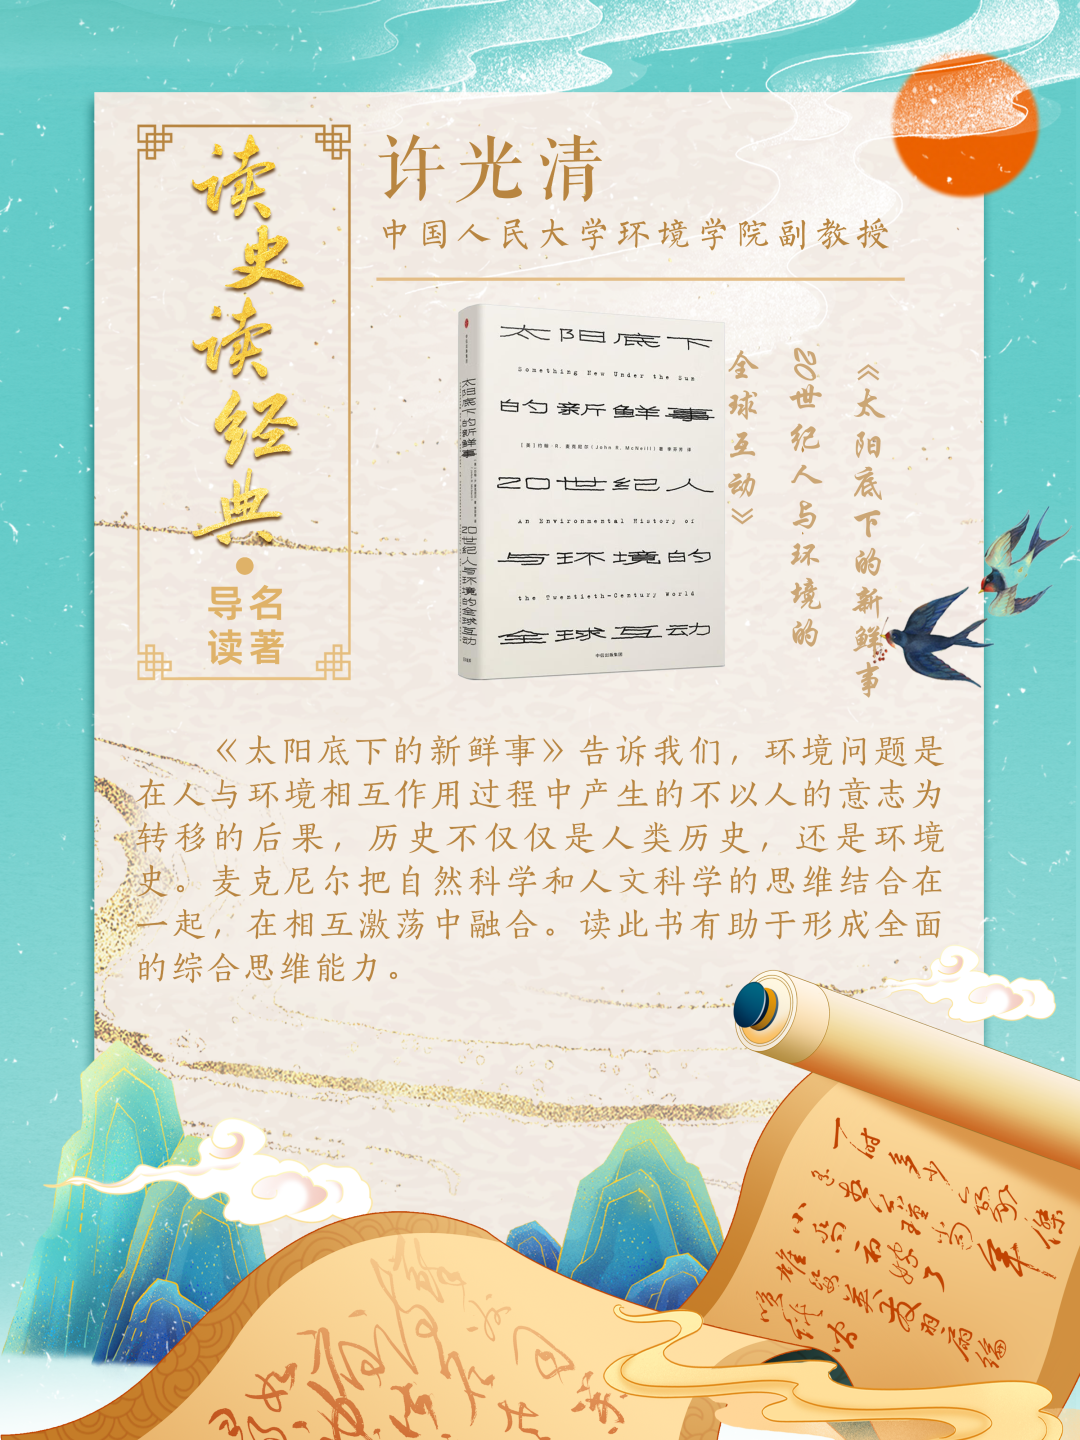 读史读经典
·
导名
读著
许光清
中国人民大学环境学院副教授
太阳底下
Something New Under the Sun
的新鲜事
[美]约翰·R.麦克尼尔(John R. McNeill) 著 李芬芳 译
20世纪人
An Environmental History of
与环境的
the Twentieth-Century World
全球互动
中信出版集团
太阳底下的新鲜事
20世纪人与环境的全球互动
《太阳底下的新鲜事
20世纪人与环境的
全球互动》
《太阳底下的新鲜事》告诉我们，环境问题是
在人与环境相互作用过程中产生的不以人的意志为
转移的后果，历史不仅仅是人类历史，还是环境
史。麦克尼尔把自然科学和人文科学的思维结合在
一起，在相互激荡中融合。读此书有助于形成全面
的综合思维能力。